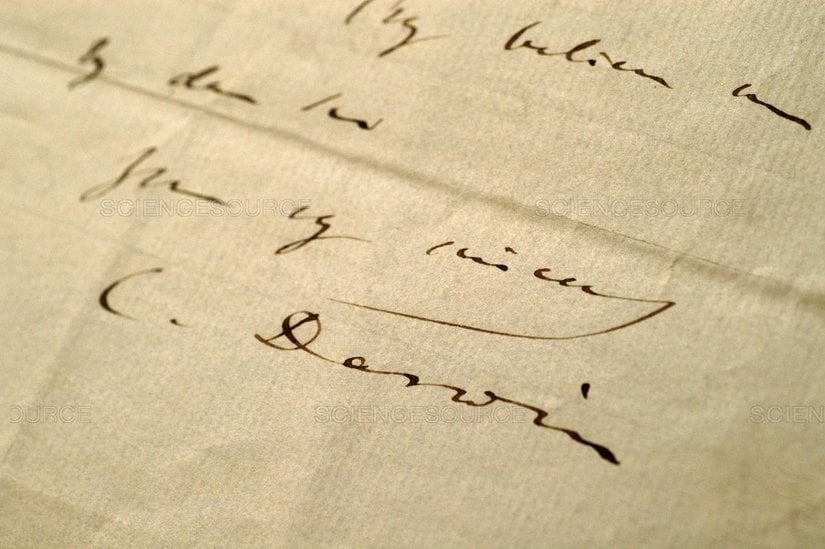 Pray believe me
My dear Sir
Yours very sincerely
C. Darwin
SCIENCESOURCE SCIENCESOURCE
OURCE SCIENCESOURCE SCIENCES